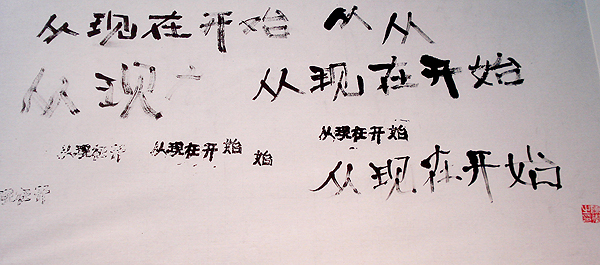 从现在开始 从从
从现在开始
从现
从现在开始
从现在开
从现在开始
始
从现在开始
现在开